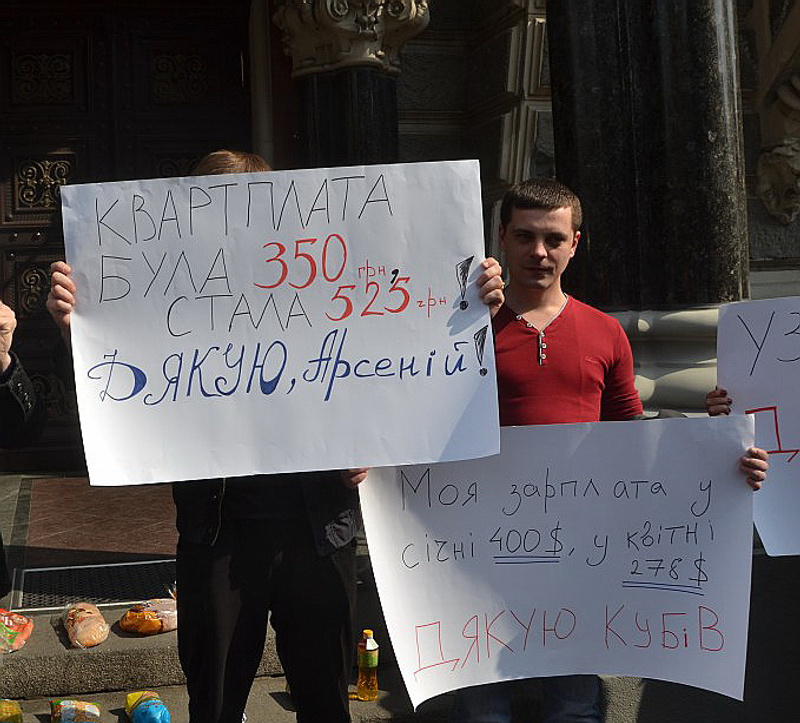 КВАРТПЛАТА
БУЛА 350 грн,
СТАЛА 525 грн!
ДЯКУЮ, Арсеній!
Моя зарплата у
січні 400$, у квітні
278$
ДЯКУЮ КУБІВ
УЗ
Д